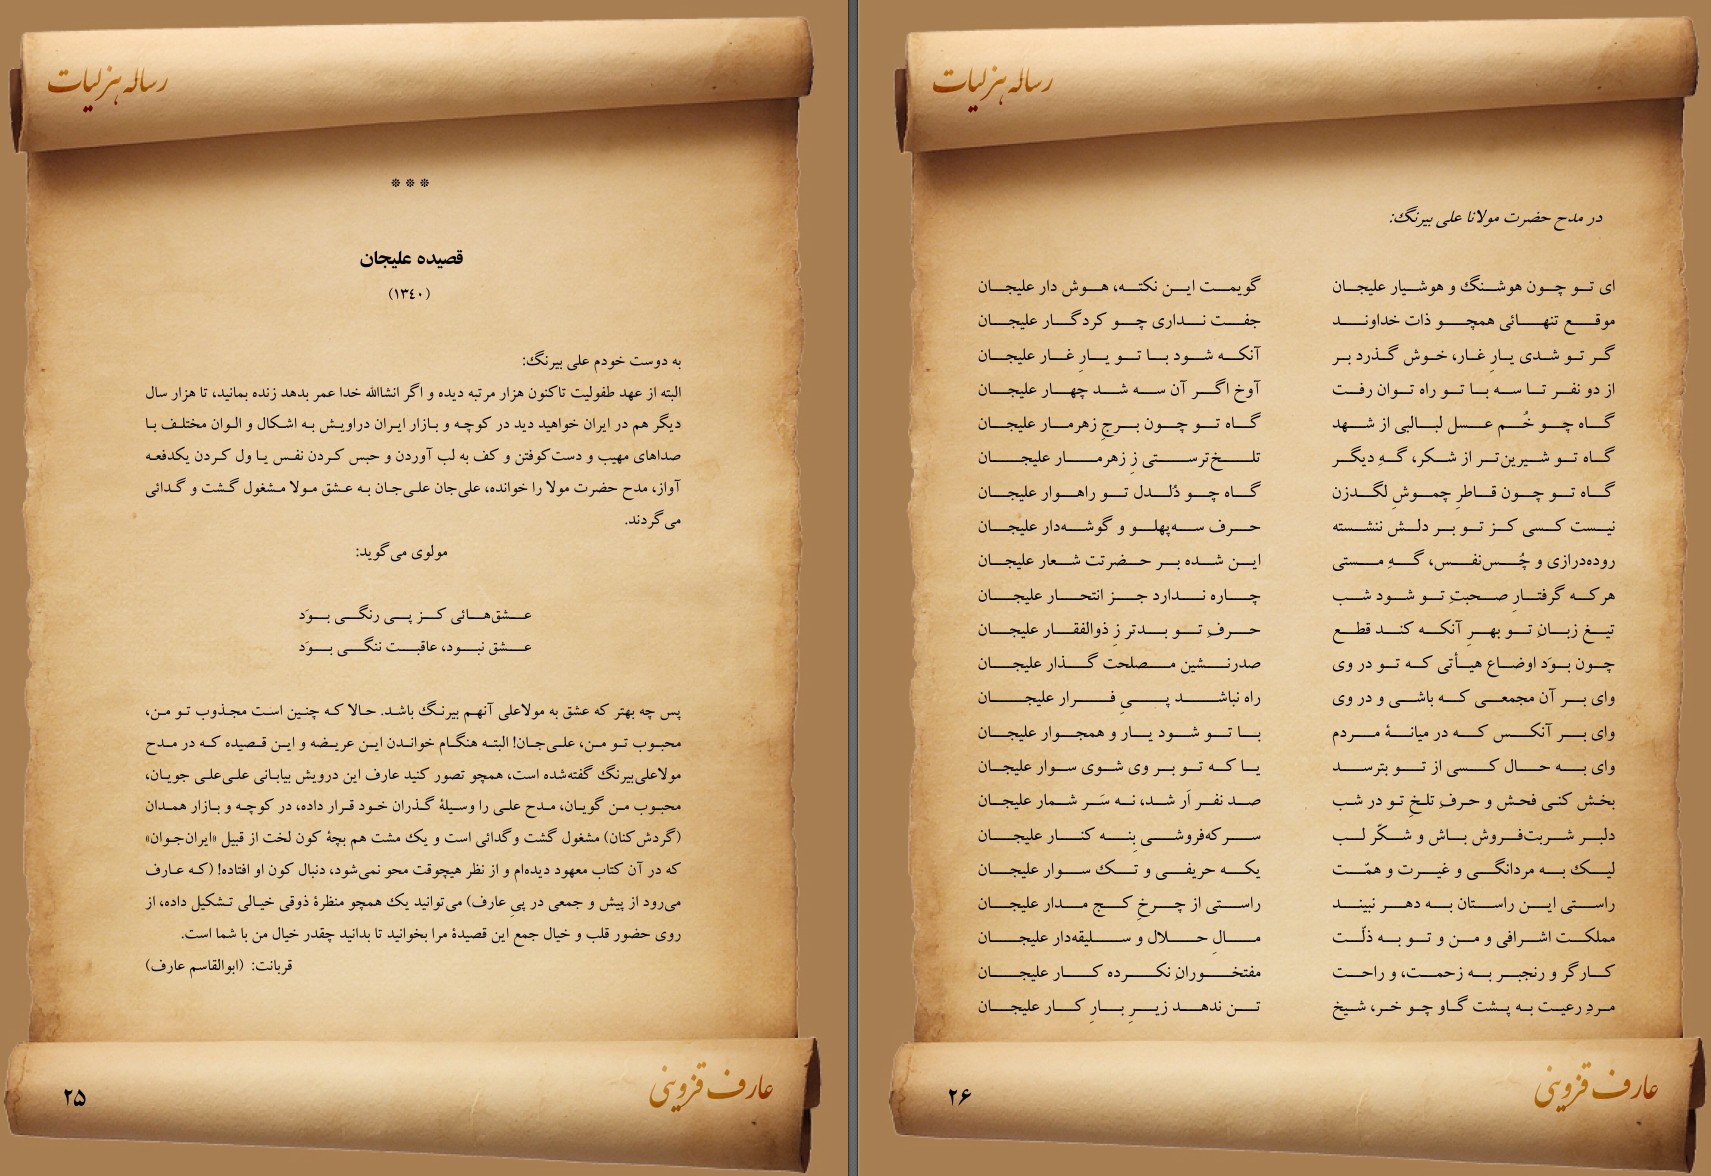 رساله هزلیات
***
قصیده علیجان
(۱۳٤۰)
به دوست خودم علی بیرنگ:
البته از عهد طفولیت تاکنون هزار مرتبه دیده و اگر انشاالله خدا عمر بدهد زنده بمانید، تا هزار سال
دیگر هم در ایران خواهید دید در کوچه و بازار ایران دراویش به اشکال و الوان مختلف با
صداهای مهیب و دست‌کوفتن و کف به لب آوردن و حبس کردن نفس یا ول کردن یکدفعه
آواز، مدح حضرت مولا را خوانده، علی‌جان علی‌جان به عشق مولا مشغول گشت و گدائی
می‌گردند.
مولوی می‌گوید:
عشق‌هائی کز پی رنگی بوَد
عشق نبود، عاقبت ننگی بوَد
پس چه بهتر که عشق به مولاعلی آنهم بیرنگ باشد. حالا که چنین است مجذوب تو من،
محبوب تو من، علی‌جان! البته هنگام خواندن این عریضه و این قصیده که در مدح
مولاعلی‌بیرنگ گفته‌شده است، همچو تصور کنید عارف این درویش بیابانی علی‌علی جویان،
محبوب من گویان، مدح علی را وسیلهٔ گذران خود قرار داده، در کوچه و بازار همدان
(گردش‌کنان) مشغول گشت وگدائی است و یک مشت هم بچهٔ کون لخت از قبیل «ایران‌جوان»
که در آن کتاب معهود دیده‌ام و از نظر هیچوقت محو نمی‌شود، دنبال کون او افتاده! (که عارف
می‌رود از پیش و جمعی در پیِ عارف) می‌توانید یک همچو منظرهٔ ذوقی خیالی تشکیل داده، از
روی حضور قلب و خیال جمع این قصیدهٔ مرا بخوانید تا بدانید چقدر خیال من با شما است.
قربانت: (ابوالقاسم عارف)
عارف قزوینی
۲۵
رساله هزلیات
در مدح حضرت مولانا علی بیرنگ:
ای تو چون هوشنگ و هوشیار علیجان گویمت این نکته، هوش دار علیجان
موقع تنهائی همچو ذات خداوند جفت نداری چو کردگار علیجان
گر تو شدی یارِ غار، خوش گذرد بر آنکه شود با تو یارِ غار علیجان
از دو نفر تا سه با تو راه توان رفت آوخ اگر آن سه شد چهار علیجان
گاه چو خُم عسل لبالبی از شهد گاه تو چون برجِ زهرمار علیجان
گاه تو شیرین‌تر از شکر، گهِ دیگر تلخ‌ترستی زِ زهرمار علیجان
گاه تو چون قاطرِ چموشِ لگدزن گاه چو دُلدل تو راهوار علیجان
نیست کسی کز تو بر دلش ننشسته حرف سه‌پهلو و گوشه‌دار علیجان
روده‌درازی و چُس‌نفس، گهِ مستی این شده بر حضرتت شعار علیجان
هرکه گرفتارِ صحبتِ تو شود شب چاره ندارد جز انتحار علیجان
تیغ زبانِ تو بهرِ آنکه کند قطع حرفِ تو بدتر زِ ذوالفقار علیجان
چون بوَد اوضاع هیأتی که تو در وی صدرنشین مصلحت گذار علیجان
وای بر آن مجمعی که باشی و در وی راه نباشد پیِ فرار علیجان
وای بر آنکس که در میانهٔ مردم با تو شود یار و همجوار علیجان
وای به حال کسی از تو بترسد یا که تو بر وی شوی سوار علیجان
بخش کنی فحش و حرفِ تلخِ تو در شب صد نفر اَر شد، نه سَر شمار علیجان
دلبر شربت‌فروش باش و شکّر لب سرکه‌فروشی بِنه کنار علیجان
لیک به مردانگی و غیرت و همّت یکه حریفی و تک سوار علیجان
راستی این راستان به دهر نبیند راستی از چرخِ کج مدار علیجان
مملکت اشرافی و من و تو به ذلّت مالِ حلال و سلیقه‌دار علیجان
کارگر و رنجبر به زحمت، و راحت مفتخورانِ نکرده کار علیجان
مردِ رعیت به پشت گاو چو خر، شیخ تن ندهد زیرِ بارِ کار علیجان
عارف قزوینی
۲۶